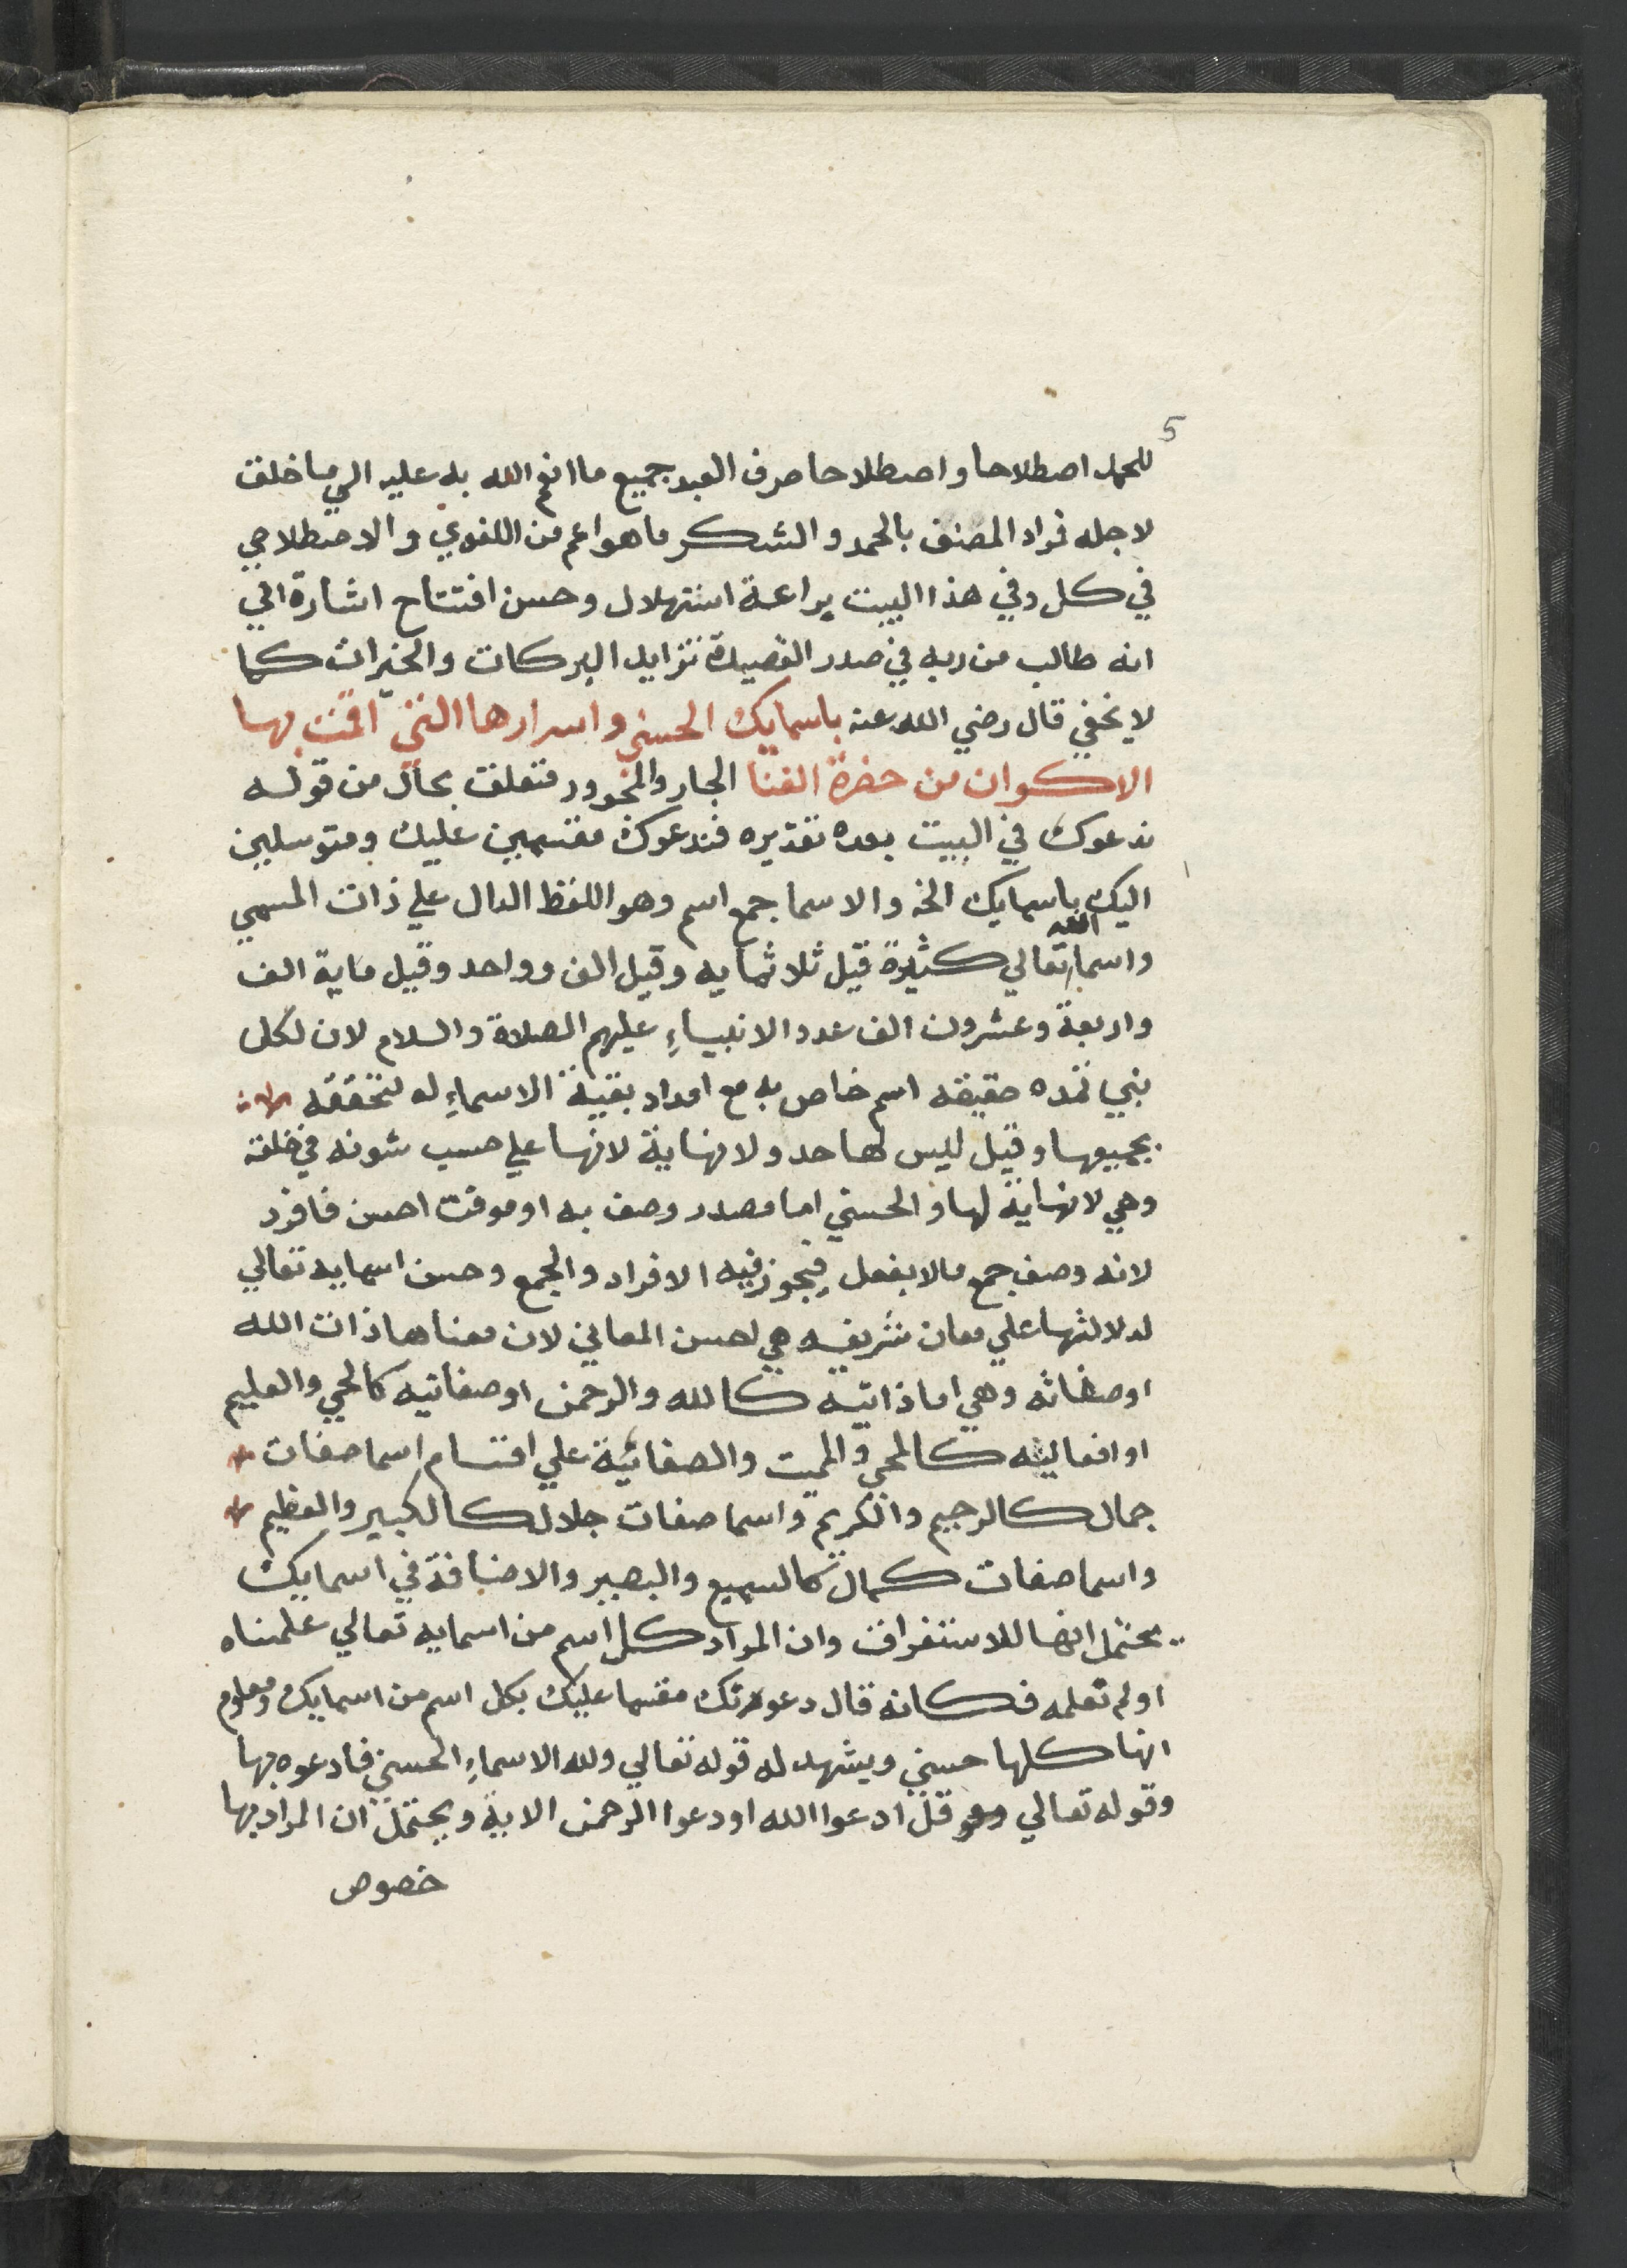 5
للحمد اصطلاحا واصطلاحا صرف العبد جميع ما انعم الله به عليه الي ما خلق
لاجله فراد المصنف بالحمد والشكر ما هو اعم من اللغوي والاصطلاحي
في كل وفي هذا البيت براعة استهلال وحسن افتتاح اشارة الي
انه طالب من ربه في صدر القصيدة تزايد البركات والخيرات كما
لا يخفي قال رضي الله عنه باسمايك الحسني واسرارها التي اقمت بها
الاكوان من حضرة الفنا الجار والمجرور متعلق بحال من قوله
ندعوك في البيت بعده تقديره فندعوك مقسمين عليك ومتوسلين
اليك باسمايك الخ والاسما جمع اسم وهو اللفظ الدال علي ذات المسمي
واسما الله تعالي كثيرة قيل ثلاثمايه وقيل الف وواحد وقيل ماية الف
واربعة وعشرون الف عدد الانبياءِ عليهم الصلاة والسلام لان لكل
نبي تمده حقيقه اسم خاص به مع امداد بقية الاسماءِ له لتحققه
بجميعها وقيل ليس لها حد ولا نهاية لانها علي حسب شونه في خلقه
وهي لا نهاية لها والحسني اما مصدر وصف به او مونث احسن فافرد
لانه وصف جمع مالا يعقل فيجوز فيه الافراد والجمع وحسن اسمايه تعالي
لدلالتها علي معان شريفه هي احسن المعاني لان معناها ذات الله
او صفاته وهي اما ذاتيه كالله والرحمن او صفاتيه كالحي والعليم
او افعاليه كالمحي والمميت والصفاتية علي اقسام اسما صفات
جمال كالرحيم والكريم واسما صفات جلال كالكبير والعظيم
واسما صفات كمال كالسميع والبصير والاضافة في اسمايك
يحتمل انها للاستغراق وان المراد كل اسم من اسمايه تعالي علمناه
او لم نعلمه فكانه قال دعوتك مقسما عليك بكل اسم من اسمايك ومعلوم
انها كلها حسني ويشهد له قوله تعالي ولله الاسماءِ الحسني فادعوه بها
وقوله تعالي قل ادعوا الله او دعوا الرحمن الاية ويحتمل ان المراد بها
خصوص